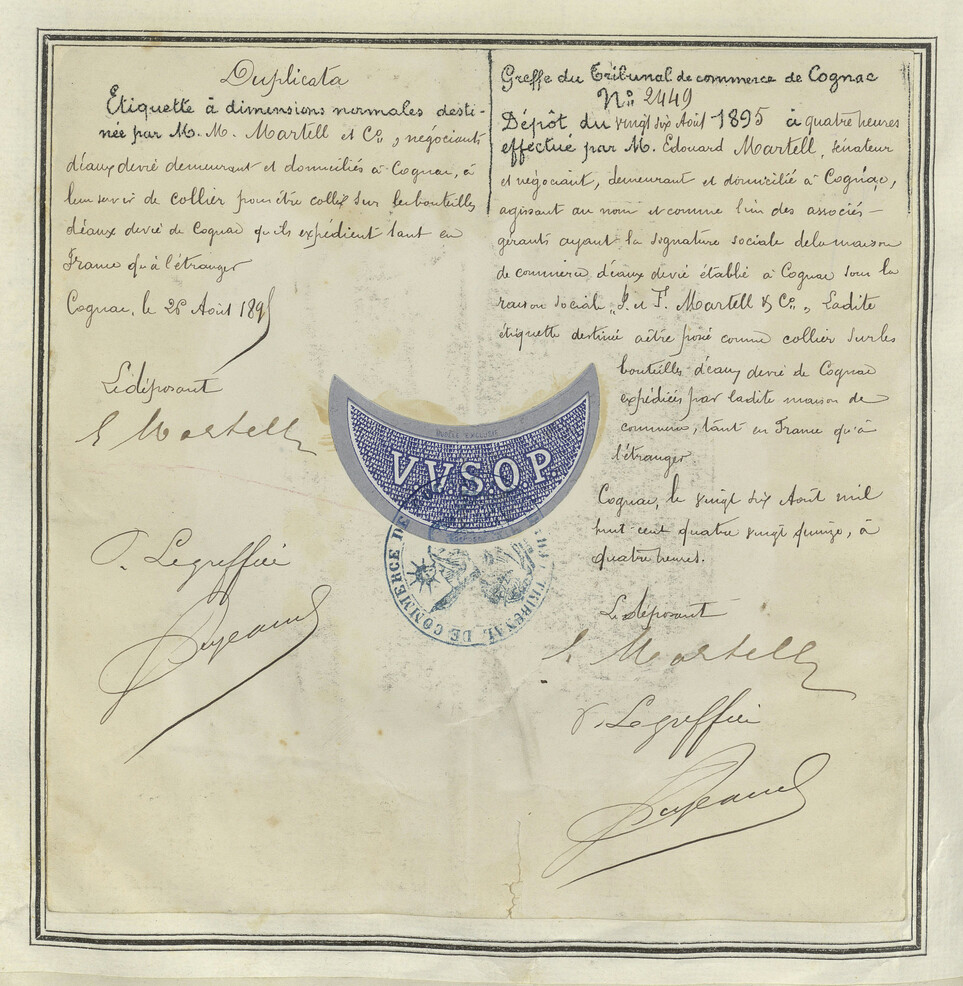 Duplicata
Etiquette à dimensions normales desti-
née par M. M. Martell et Cie, négociants
d'eaux de vie demeurant et domiciliés à Cognac, à
leur servir de collier pour être collée sur les bouteilles
d'eaux de vie de Cognac qu'ils expédient tant en
France qu'à l'étranger
Cognac, le 26 Août 1895
Le déposant
E Martell
P. Le greffier
Greffe du Tribunal de commerce de Cognac
No 2449
Dépôt du vingt six Août 1895 à quatre heures
effectué par M. Edouard Martell, sénateur
et négociant, demeurant et domicilié à Cognac,
agissant au nom et comme l'un des associés-
gérants ayant la signature sociale de la maison
de commerce d'eaux de vie établie à Cognac sous la
raison sociale "J. et F. Martell & Co", Ladite
étiquette destinée à être posée comme collier sur les
bouteilles d'eaux de vie de Cognac
expédiées par ladite maison de
commerce, tant en France qu'à
l'étranger
Cognac, le vingt six Août mil
huit cent quatre vingt quinze, à
quatre heures.
Le déposant
E Martell
P. Le greffier
V.V.S.O.P.
TRIBUNAL DE COMMERCE DE